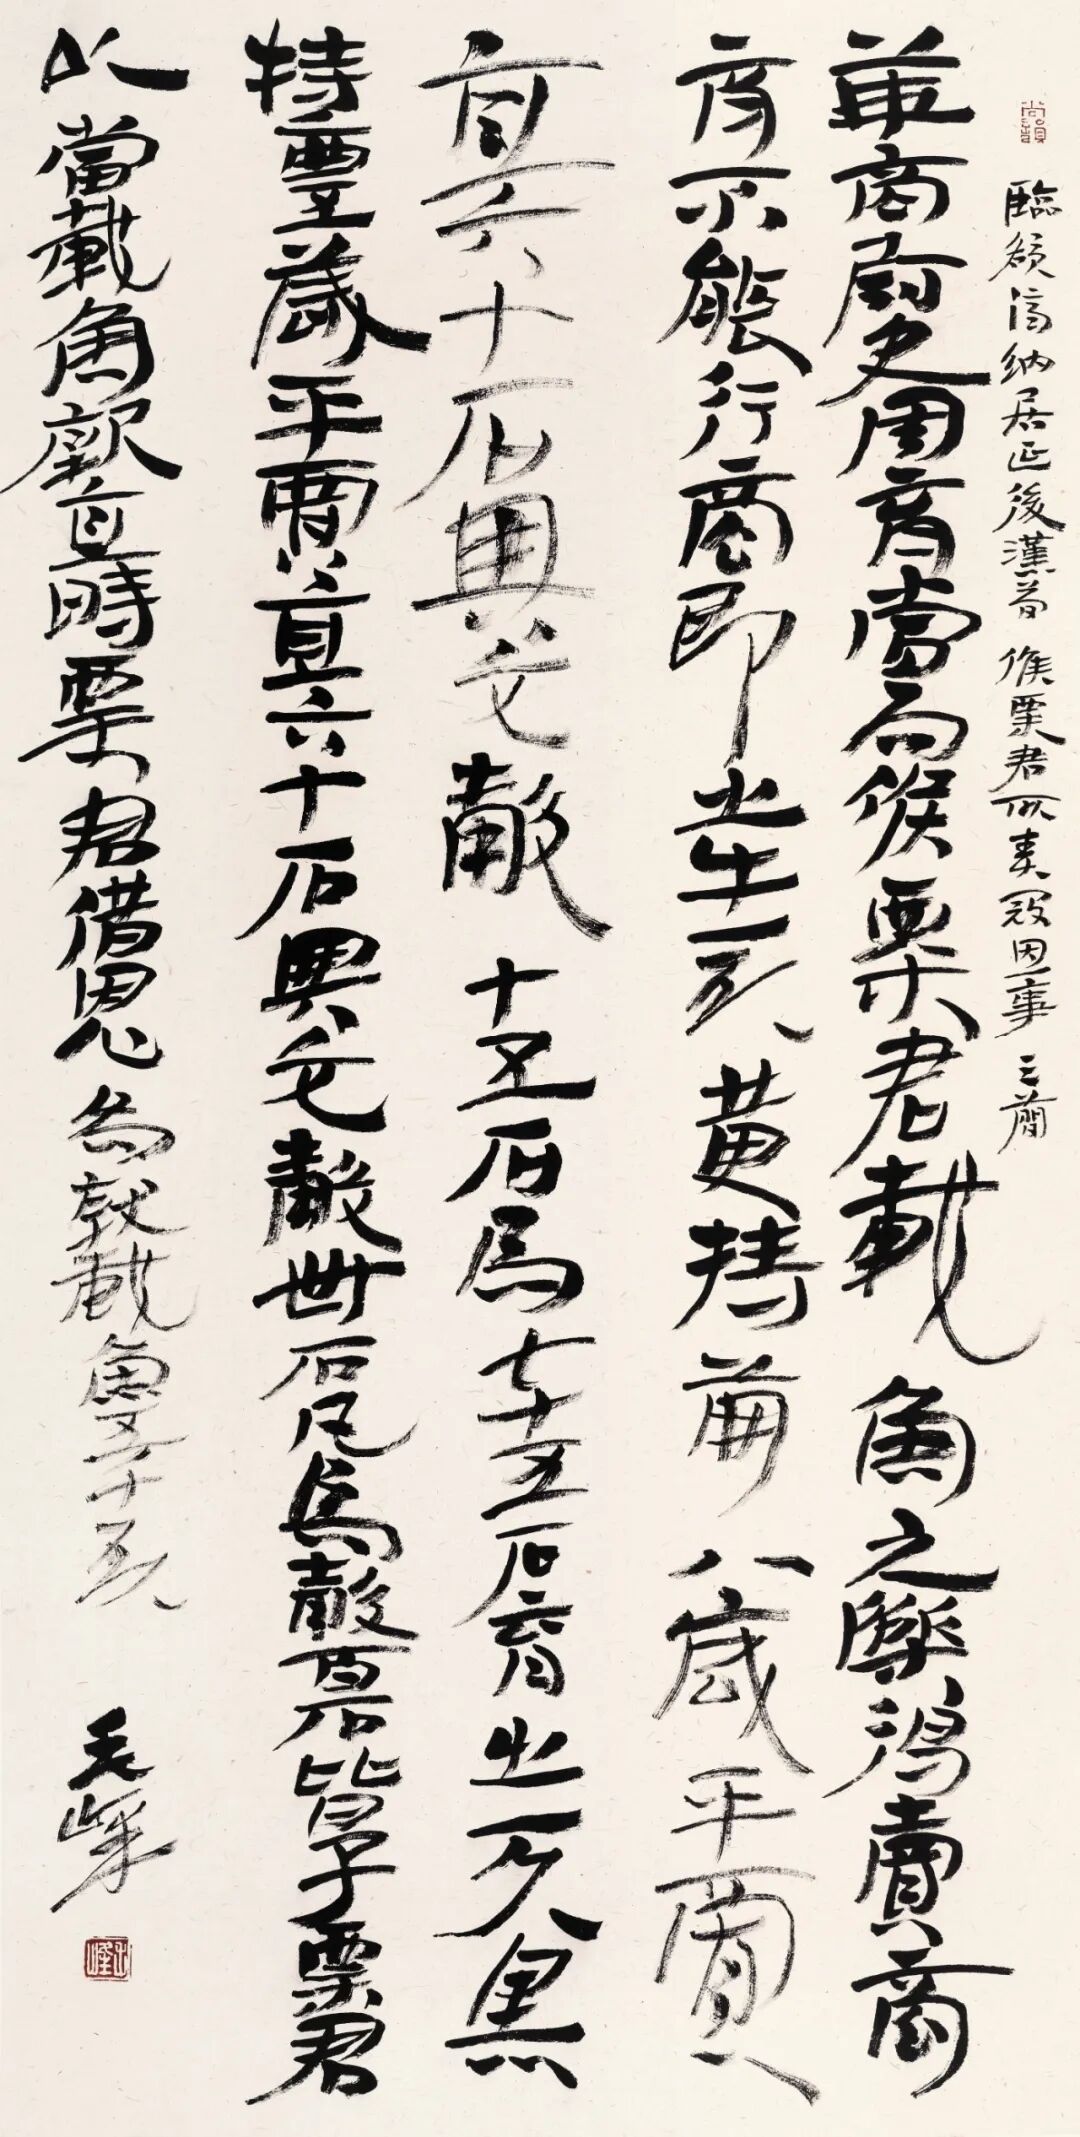 尚韻
臨額濟納居延後漢簡 候粟君所責寇恩事 之簡
華商尉史周育當為候粟君載魚之觻得賣商
育不能行商即出牛一頭黃特齒八歲平賈
直六十石與它穀十五石為七十五石育出一頭黑
特齒五歲平賈直六十石與它穀卌石凡為穀百石皆予粟君
以當載魚就直時粟君借恩為就載魚五千頭
毛峰